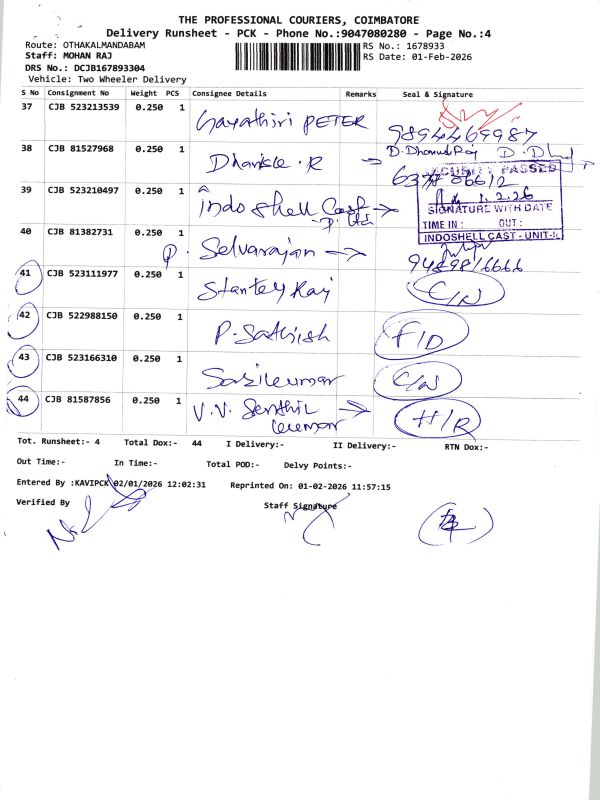 THE PROFESSIONAL COURIERS, COIMBATORE
Delivery Runsheet - PCK - Phone No.:9047080280 - Page No.:4
Route: OTHAKALMANDABAM
RS No.: 1678933
Staff: MOHAN RAJ
RS Date: 01-Feb-2026
DRS No.: DCJB167893304
Vehicle: Two Wheeler Delivery
S No Consignment No Weight PCS Consignee Details Remarks Seal & Signature
37 CJB 523213539 0.250 1 Gayathiri PETER 9894469987
38 CJB 81527968 0.250 1 R D. Dhanush
39 CJB 523210497 0.250 1 Indo shell Cast P. Ltd
SECURITY PASSED
1.2.26
SIGNATURE WITH DATE
TIME IN : OUT :
INDOSHELL CAST - UNIT-II
40 CJB 81382731 0.250 1 P. Selvarajan 9489816666
41 CJB 523111977 0.250 1 Stanley Raj C/N
42 CJB 522988150 0.250 1 P. Sathish F/D
43 CJB 523166310 0.250 1 Sasikumar C/N
44 CJB 81587856 0.250 1 V.V. Senthil kumar H/R
Tot. Runsheet:- 4 Total Dox:- 44 I Delivery:- II Delivery:- RTN Dox:-
Out Time:- In Time:- Total POD:- Delvy Points:-
Entered By :KAVIPCK 02/01/2026 12:02:31 Reprinted On: 01-02-2026 11:57:15
Verified By Staff Signature